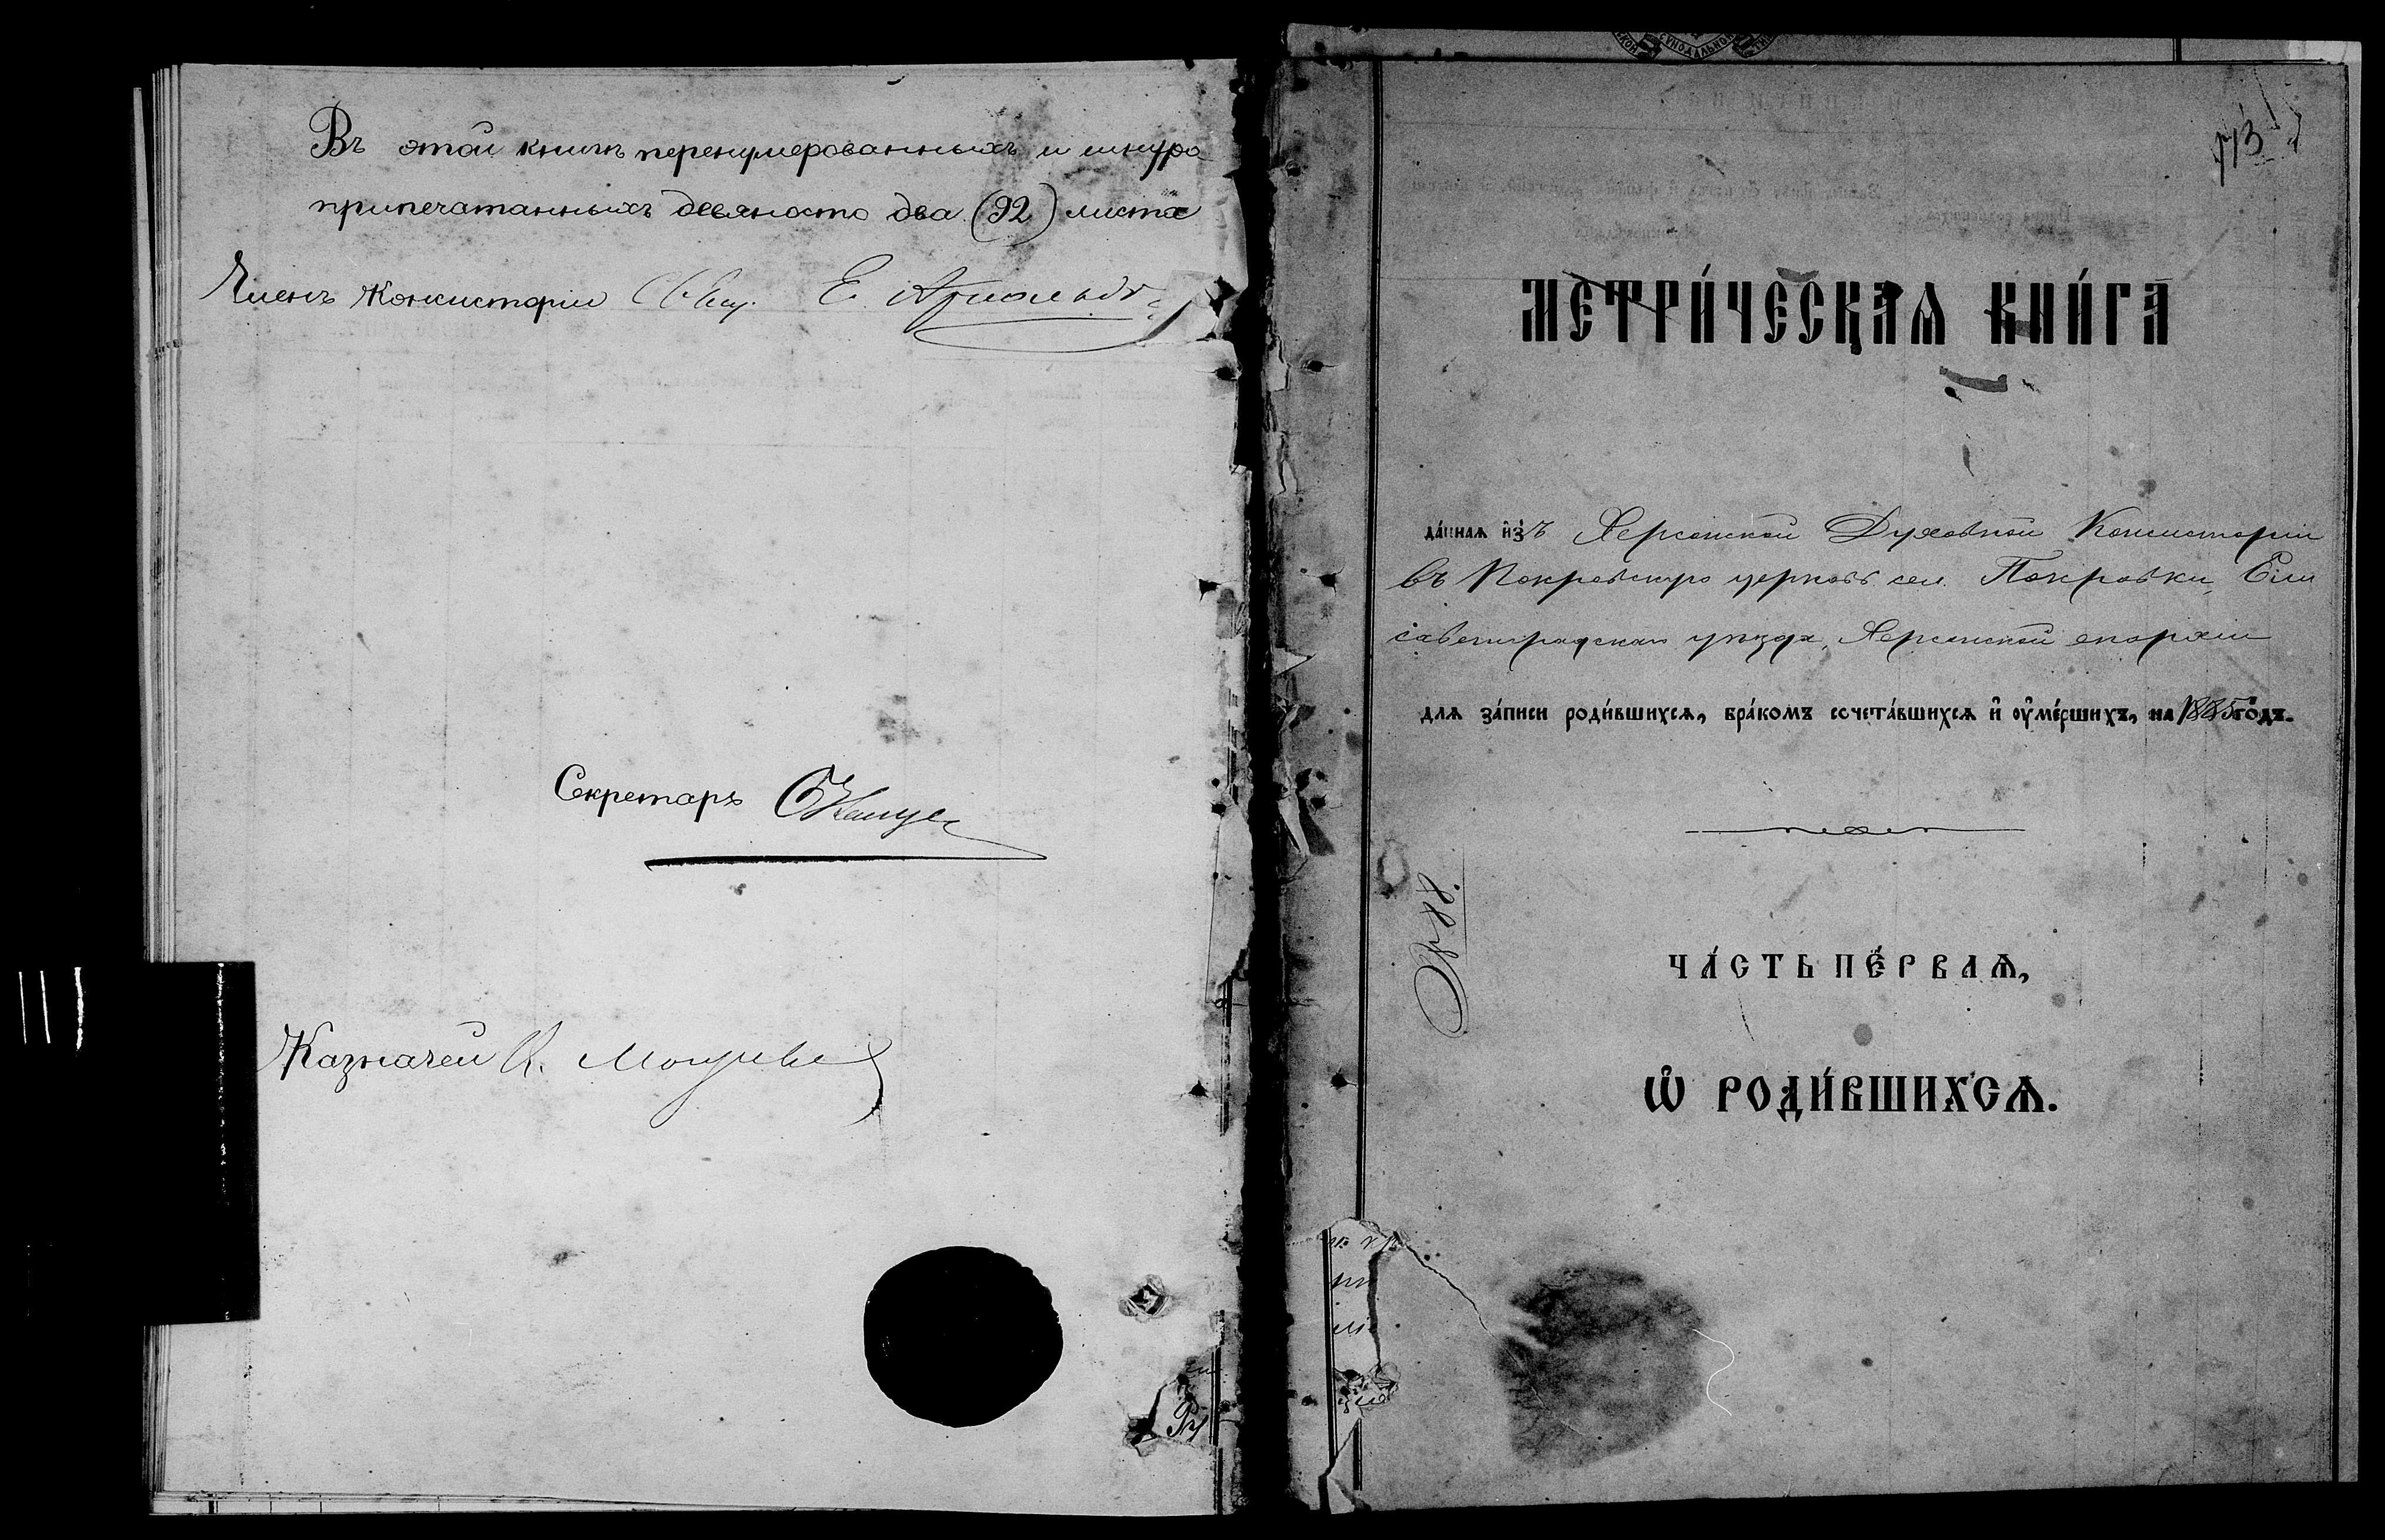 Въ этой книгѣ перенумерованныхъ и шнуро
припечатанныхъ девяносто два (92) листа
Членъ Консисторіи Свящ. Е. Арнольдъ
Секретарь
Казначей
773
МЕТРИ́ЧЕСКАѦ КНИ́ГА
да́ннаѧ и҆зъ Херсонской Духовной Консисторіи
въ Покровскую церковь сел. Покровки, Ели
саветградскаго уѣзда, Херсонской епархіи
длѧ за́писи роди́вшихсѧ, бра́комъ сочета́вшихсѧ и҆ оу҆ме́ршихъ, на 1885 го́дъ.
№ 88.
ЧА́СТЬ ПЕ́РВАѦ,
Ѡ҆ РОДИ́ВШИХСѦ.